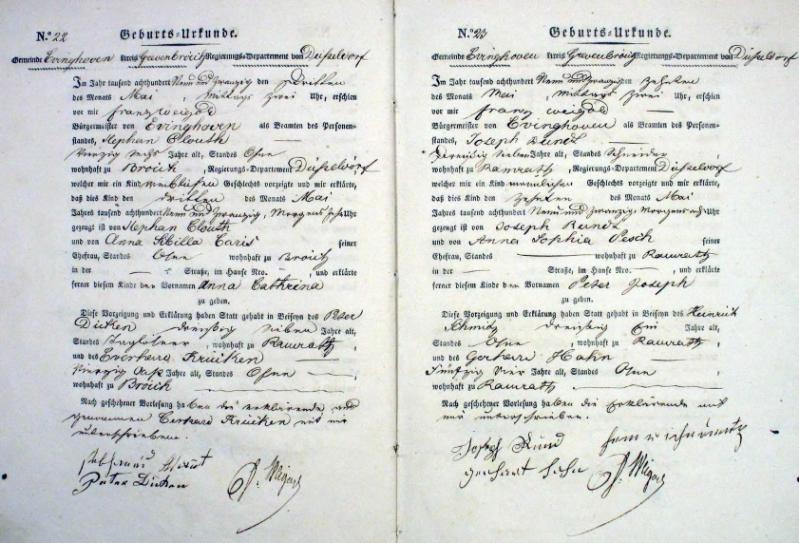 N.º 22
Geburts-Urkunde.
Gemeinde Evinghoven Kreis Grevenbroich Regierungs-Departement von Düsseldorf
Im Jahr tausend achthundert Neun und zwanzig den dritten
des Monats Mai, Mittags zwei Uhr, erschien
vor mir Franz Weigold
Bürgermeister von Evinghoven als Beamten des Personen-
standes, Stephan Clouth
vierzig sechs Jahre alt, Standes Ohne
wohnhaft zu Broich, Regierungs-Departement Düsseldorf
welcher mir ein Kind weiblichen Geschlechts vorzeigte und mir erklärte,
daß dies Kind den dritten des Monats Mai
Jahres tausend achthundert Neun und zwanzig, Morgens Uhr
gezeugt ist von Stephan Clouth
und von Anna Sibilla Caris seiner
Ehefrau, Standes Ohne wohnhaft zu Broich
in der — Straße, im Hause Nro. —, und erklärte
ferner diesem Kinde den Vornamen Anna Cathrina
zu geben.
Diese Vorzeigung und Erklärung haben Statt gehabt in Beiseyn des Peter
Dicken dreißig sieben Jahre alt,
Standes Taglöhner, wohnhaft zu Ramrath
und des Everhard Krücken
vierzig acht Jahre alt, Standes Ohne
wohnhaft zu Broich
Nach geschehener Vorlesung haben die erklärende und
genannten Everhard Krücken mit mir
unterschrieben.
Peter Dicken
N.º 23
Geburts-Urkunde.
Gemeinde Evinghoven Kreis Grevenbroich Regierungs-Departement von Düsseldorf
Im Jahr tausend achthundert Neun und zwanzig den zehnten
des Monats Mai, Mittags zwei Uhr, erschien
vor mir Franz Weigold
Bürgermeister von Evinghoven als Beamten des Personen-
standes, Joseph Rund
dreißig sieben Jahre alt, Standes Schneider
wohnhaft zu Ramrath, Regierungs-Departement Düsseldorf
welcher mir ein Kind männlichen Geschlechts vorzeigte und mir erklärte,
daß dies Kind den zehnten des Monats Mai
Jahres tausend achthundert Neun und zwanzig, Morgens Uhr
gezeugt ist von Joseph Rund
und von Anna Sophia Pesch seiner
Ehefrau, Standes Ohne wohnhaft zu Ramrath
in der — Straße, im Hause Nro. —, und erklärte
ferner diesem Kinde den Vornamen Peter Joseph
zu geben.
Diese Vorzeigung und Erklärung haben Statt gehabt in Beiseyn des Heinrich
Schmitz dreißig Ein Jahre alt,
Standes Ohne, wohnhaft zu Ramrath
und des Gerhard Hahn
fünfzig vier Jahre alt, Standes Ohne
wohnhaft zu Ramrath
Nach geschehener Vorlesung haben die Erklärende mit
mir unterschrieben.
Joseph Rund
gerhart hahn